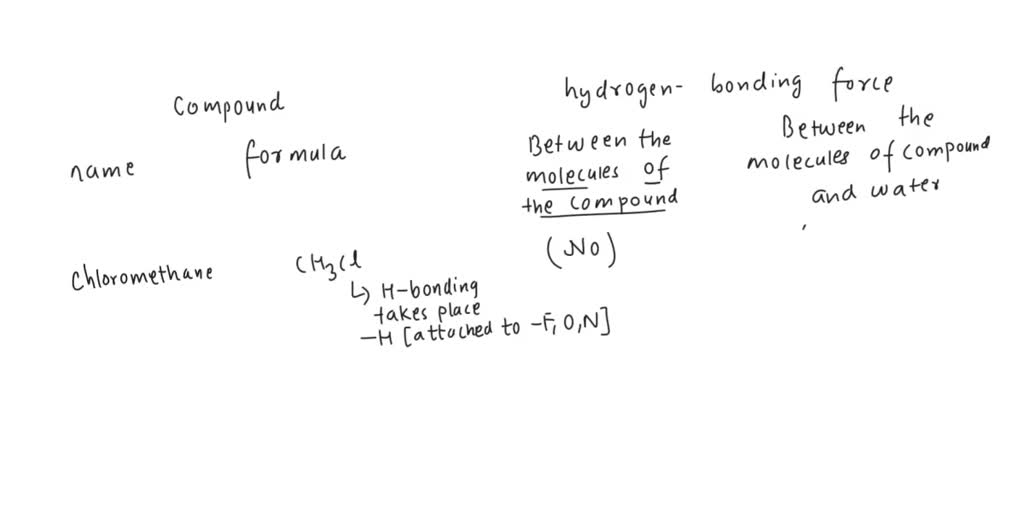 Compound
hydrogen- bonding force
name
formula
Between the
molecules of
the compound
Between the
molecules of compound
and water
Chloromethane
CH3Cl
(No)
↳ H-bonding
takes place
-H [attached to -F, O, N]